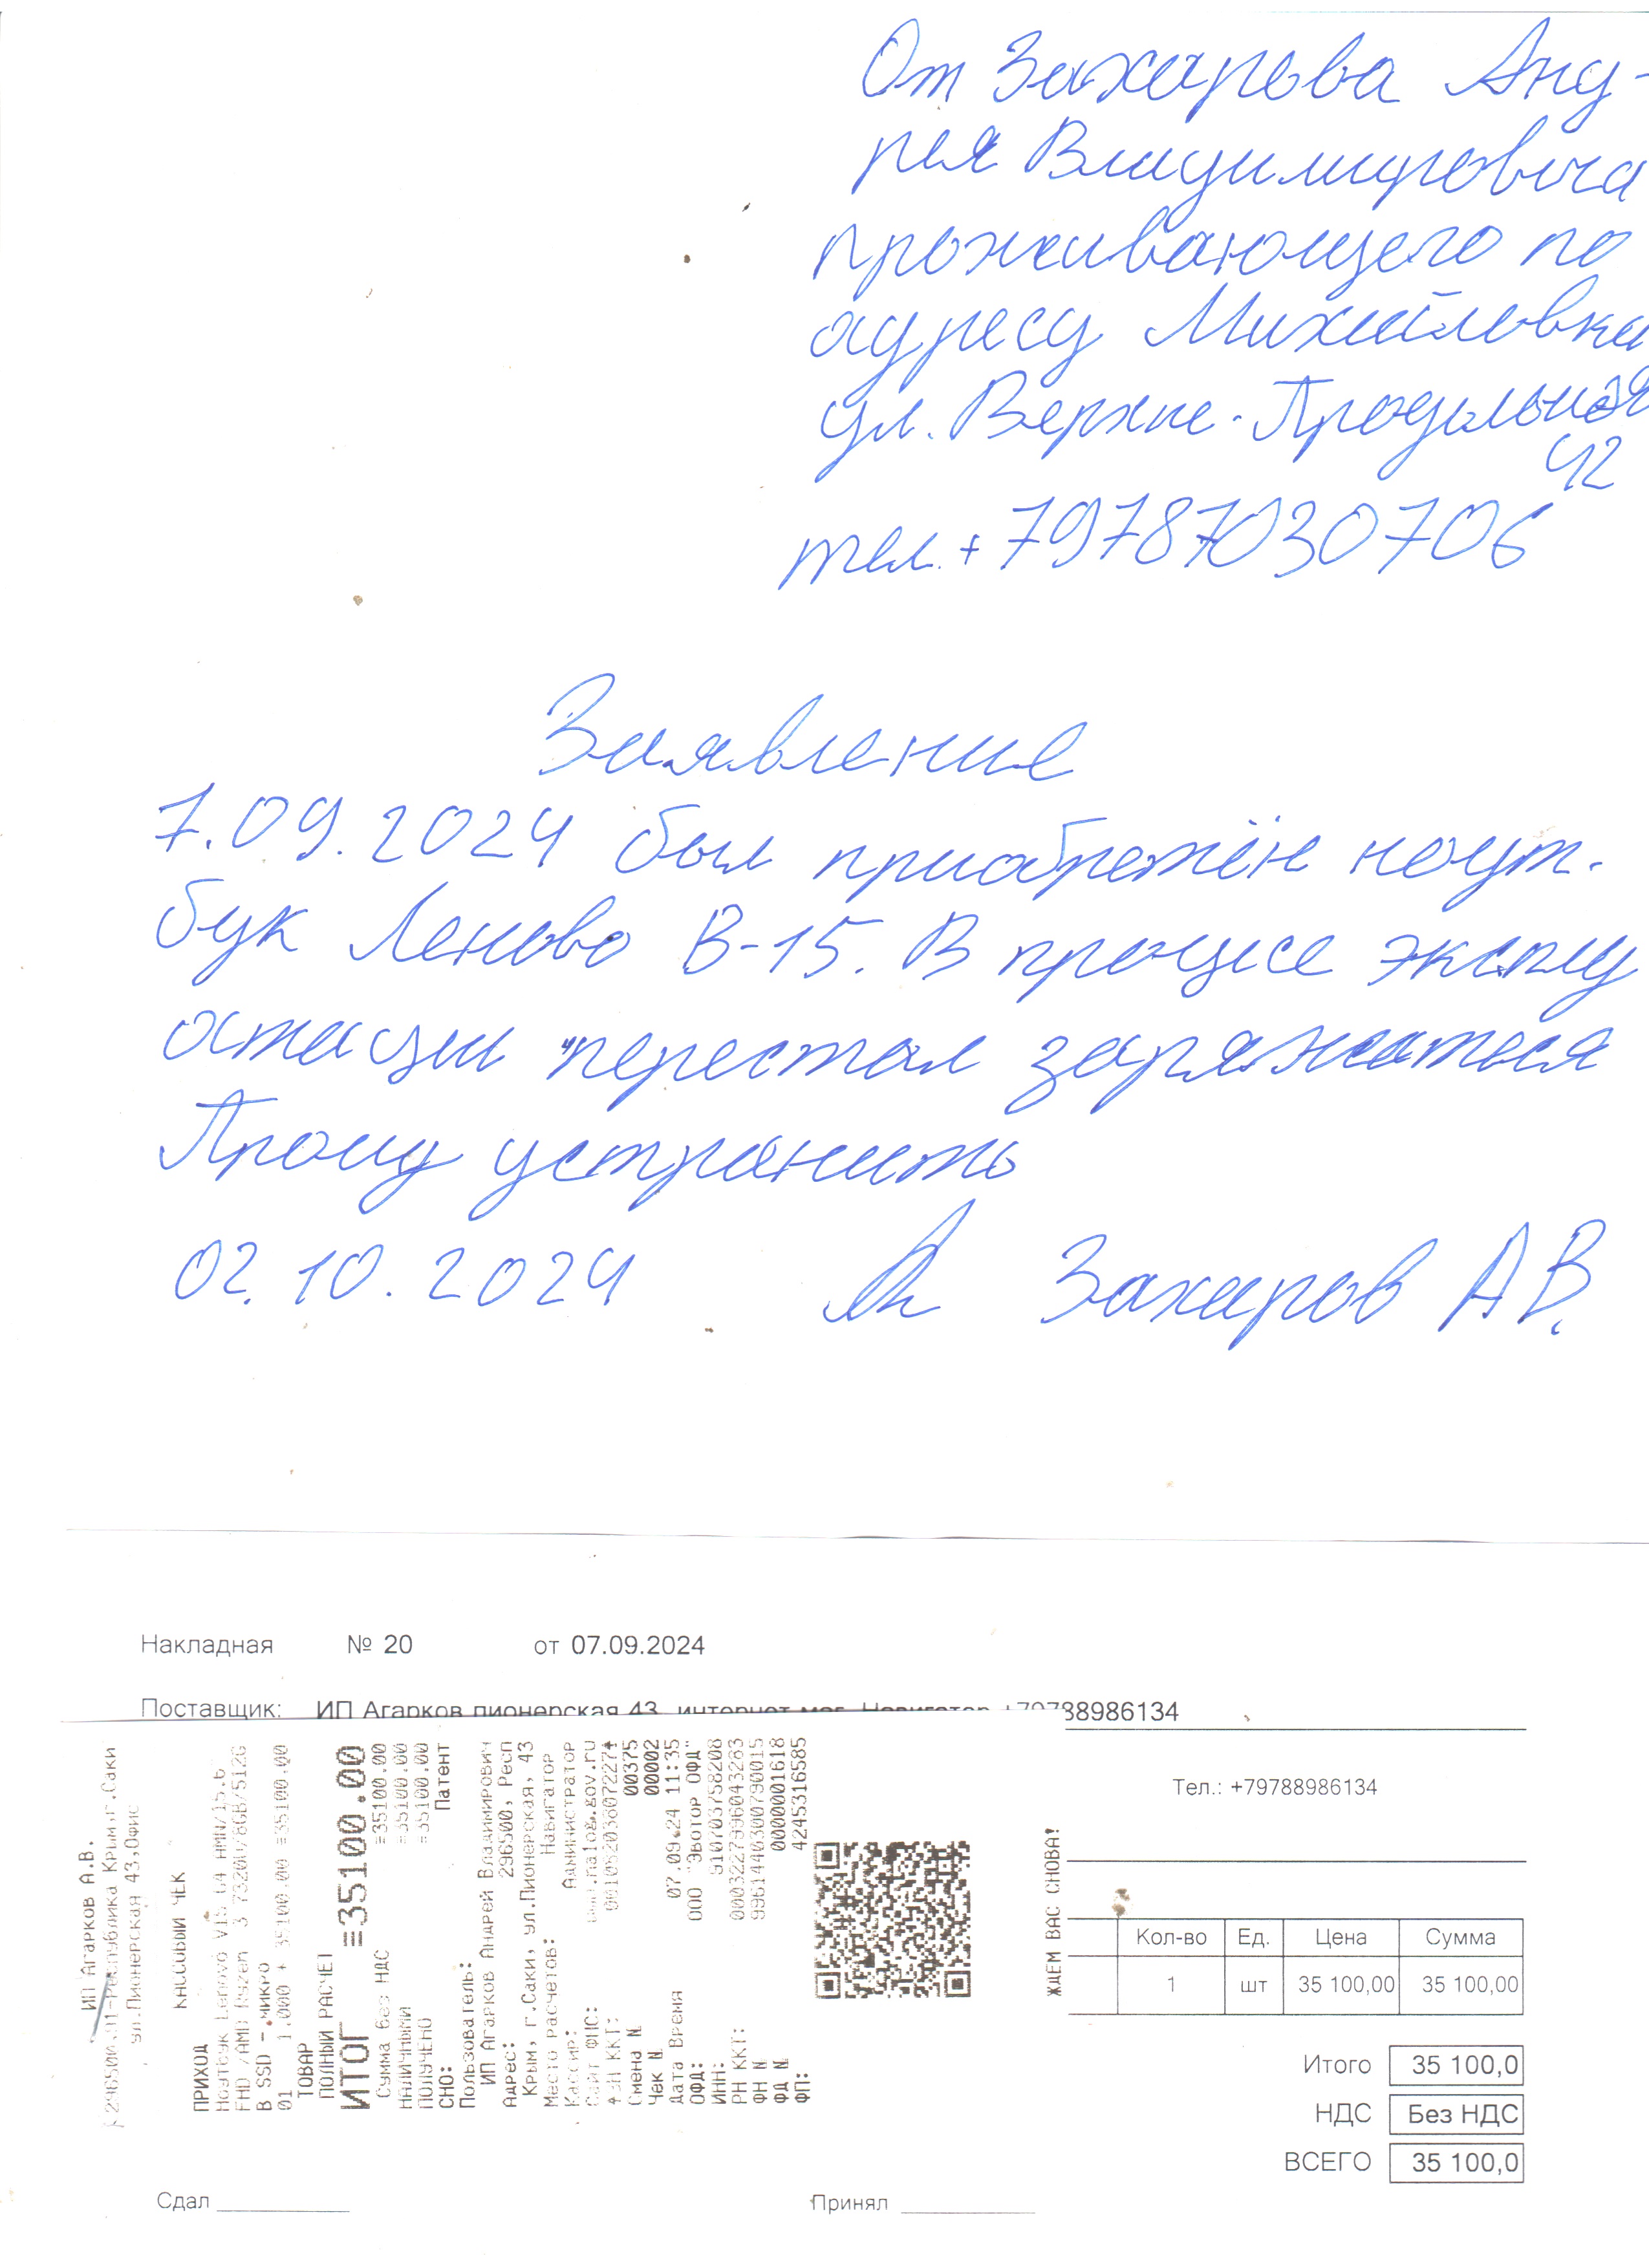 От Захарова Анд-
рея Владимировича
проживающего по
адресу Михайловка
ул. Верхне-Продольная
42
тел. +79787030706
Заявление
7.09.2024 был приобретён ноут-
бук Леново В-15. В процесе эксплу
атации перестал заряжаться
Прошу устранить
02.10.2024 Захаров АВ.
Накладная № 20 от 07.09.2024
Поставщик: ИП Агарков пионерская 43, интернет маг. Навигатор +79788986134
Тел.: +79788986134
Кол-во Ед. Цена Сумма
1 шт 35 100,00 35 100,00
Итого 35 100,0
НДС Без НДС
ВСЕГО 35 100,0
Сдал
Принял
ИП Агарков А.В.
Республика Крым,г.Саки
ул.Пионерская 43,Офис
КАССОВЫЙ ЧЕК
ПРИХОД
Ноутбук Lenovo V15 G4 AMN/15.6
FHD /AMD Ryzen 3 7320U/8GB/512G
B SSD - МИКРО
01 1.000 * 35100.00 =35100.00
ТОВАР
ПОЛНЫЙ РАСЧЕТ
ИТОГ =35100.00
Сумма без НДС =35100.00
НАЛИЧНЫМИ =35100.00
ПОЛУЧЕНО =35100.00
СНО: Патент
Пользователь:
ИП Агарков Андрей Владимирович
Адрес: 296500, Респ
Крым, г.Саки, ул.Пионерская, 43
Место расчетов: Навигатор
Кассир: Администратор
Сайт ФНС: www.nalog.gov.ru
ЗН ККТ:
Смена N 00375
Чек N 00002
Дата Время 07.09.24 11:35
ОФД: ООО "Эвотор ОФД"
ИНН: 910703758208
РН ККТ: 0003227996043283
ФН N 9961440300790015
ФД N 0000001618
ФП: 4245316585
ЖДЕМ ВАС СНОВА!